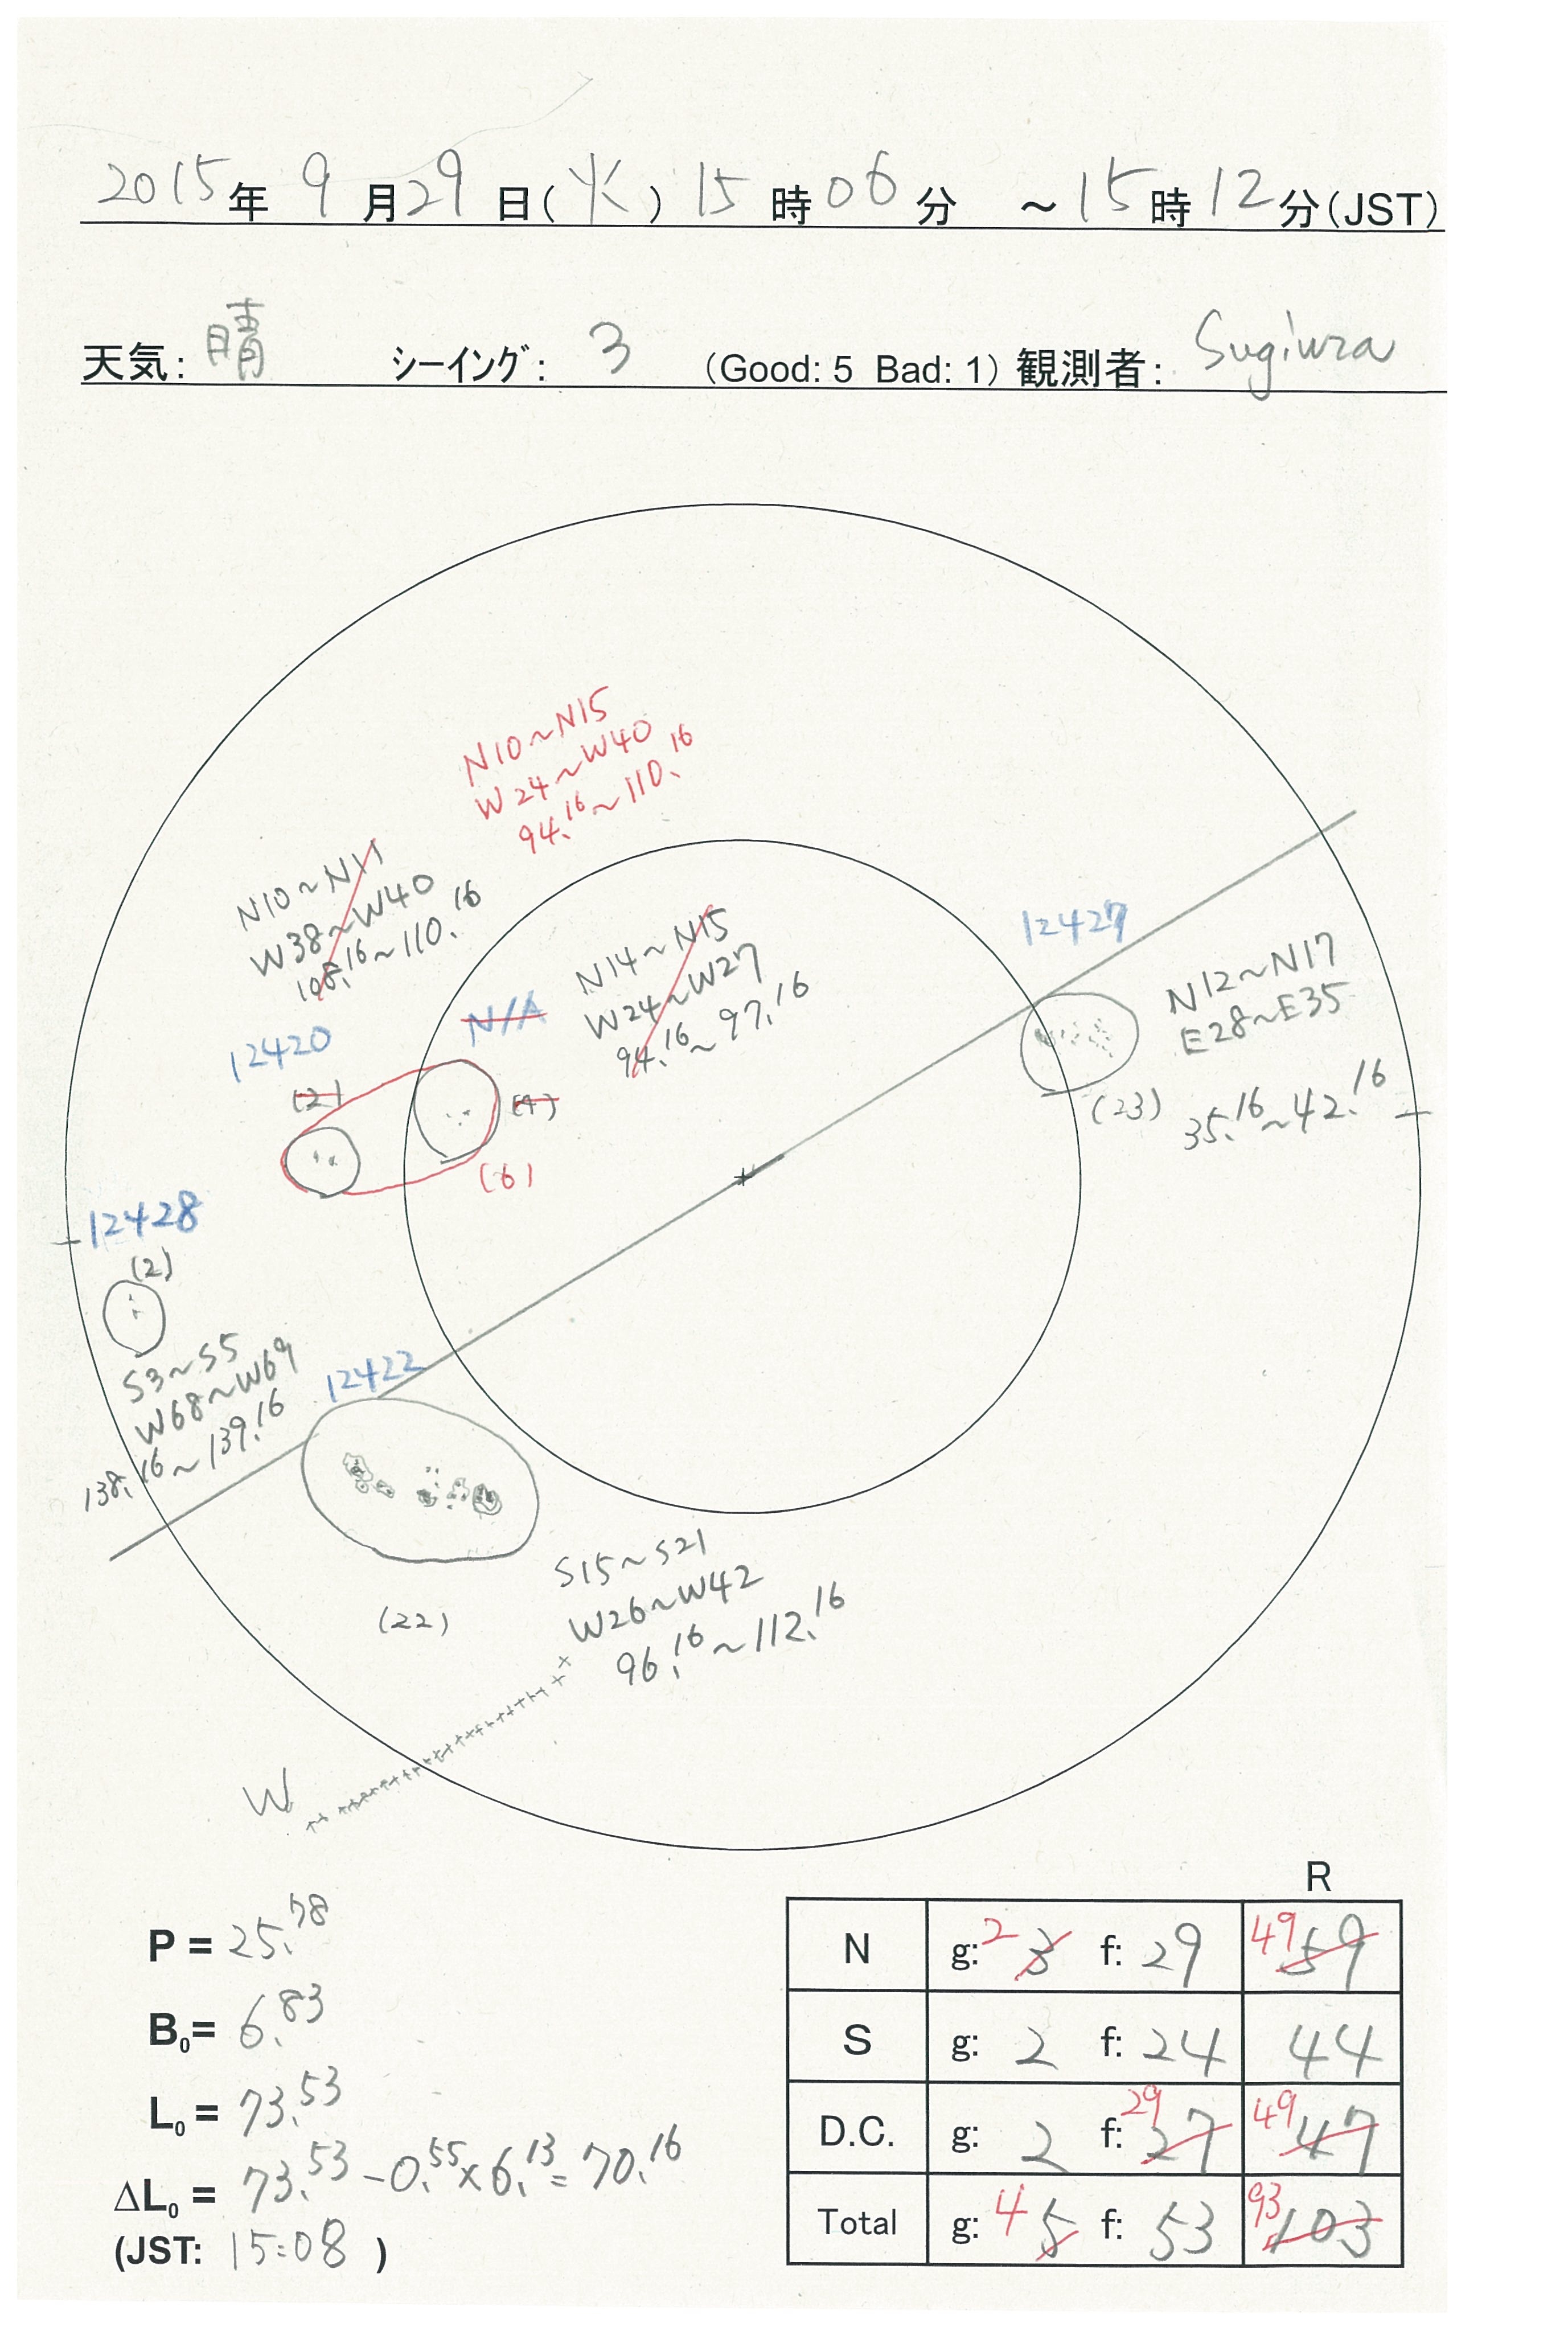 2015年 9月29日(火) 15時06分 ～15時12分(JST)
天気: 晴 シーイング: 3 (Good: 5 Bad: 1) 観測者: Sugiura
N10~N15
W24~W40
94.16~110.16
N10~N11
W38~W40
108.16~110.16
N14~N15
W24~W27
94.16~97.16
12427
N12~N17
E28~E35
35.16~42.16
(23)
N/A
12420
(2)
(4)
(6)
12428
(2)
S3~S5
W68~W69
138.16~139.16
12422
(22)
S15~S21
W26~W42
96.16~112.16
W
P = 25.78
B0= 6.83
L0 = 73.53
ΔL0 = 73.53 - 0.55 × 6.13 = 70.16
(JST: 15:08 )
R
N g: 2 3 f: 29 49 59
S g: 2 f: 24 44
D.C. g: 2 f: 29 27 49 47
Total g: 4 5 f: 53 93 103